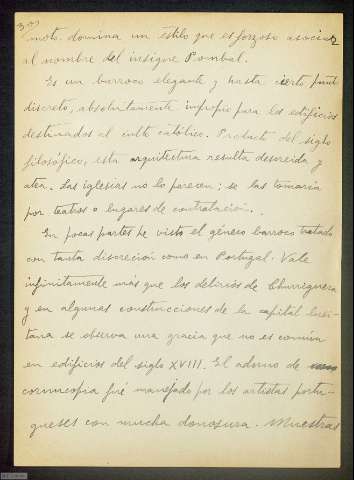 moto. domina un estilo que es forzoso asociar
al nombre del insigne Pombal.
Es un barroco elegante y hasta cierto punto
discreto, absolutamente impropio para los edificios
destinados al culto católico. Producto del siglo
filosófico, esta arquitectura resulta descreida y
atea. Las iglesias no lo parecen; se las tomaría
por teatros o lugares de contratación.
En pocas partes he visto el género barroco tratado
con tanta discreción como en Portugal. Vale
infinitamente más que los delirios de Churriguera
y en algunas construcciones de la capital lusi-
tana se observa una gracia que no es común
en edificios del siglo XVIII. El adorno de
cornucopia fué manejado por los artistas portu-
gueses con mucha donosura. Muestras